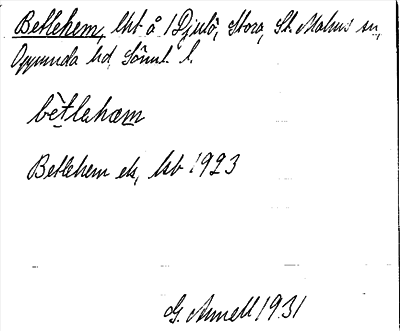 Betlehem, lht å 1 Djulö, Stora, St. Malms sn,
Oppunda hd, Söml. l.
bètlahæm
Betlehem ek, lsb 1923
G. Armell 1931